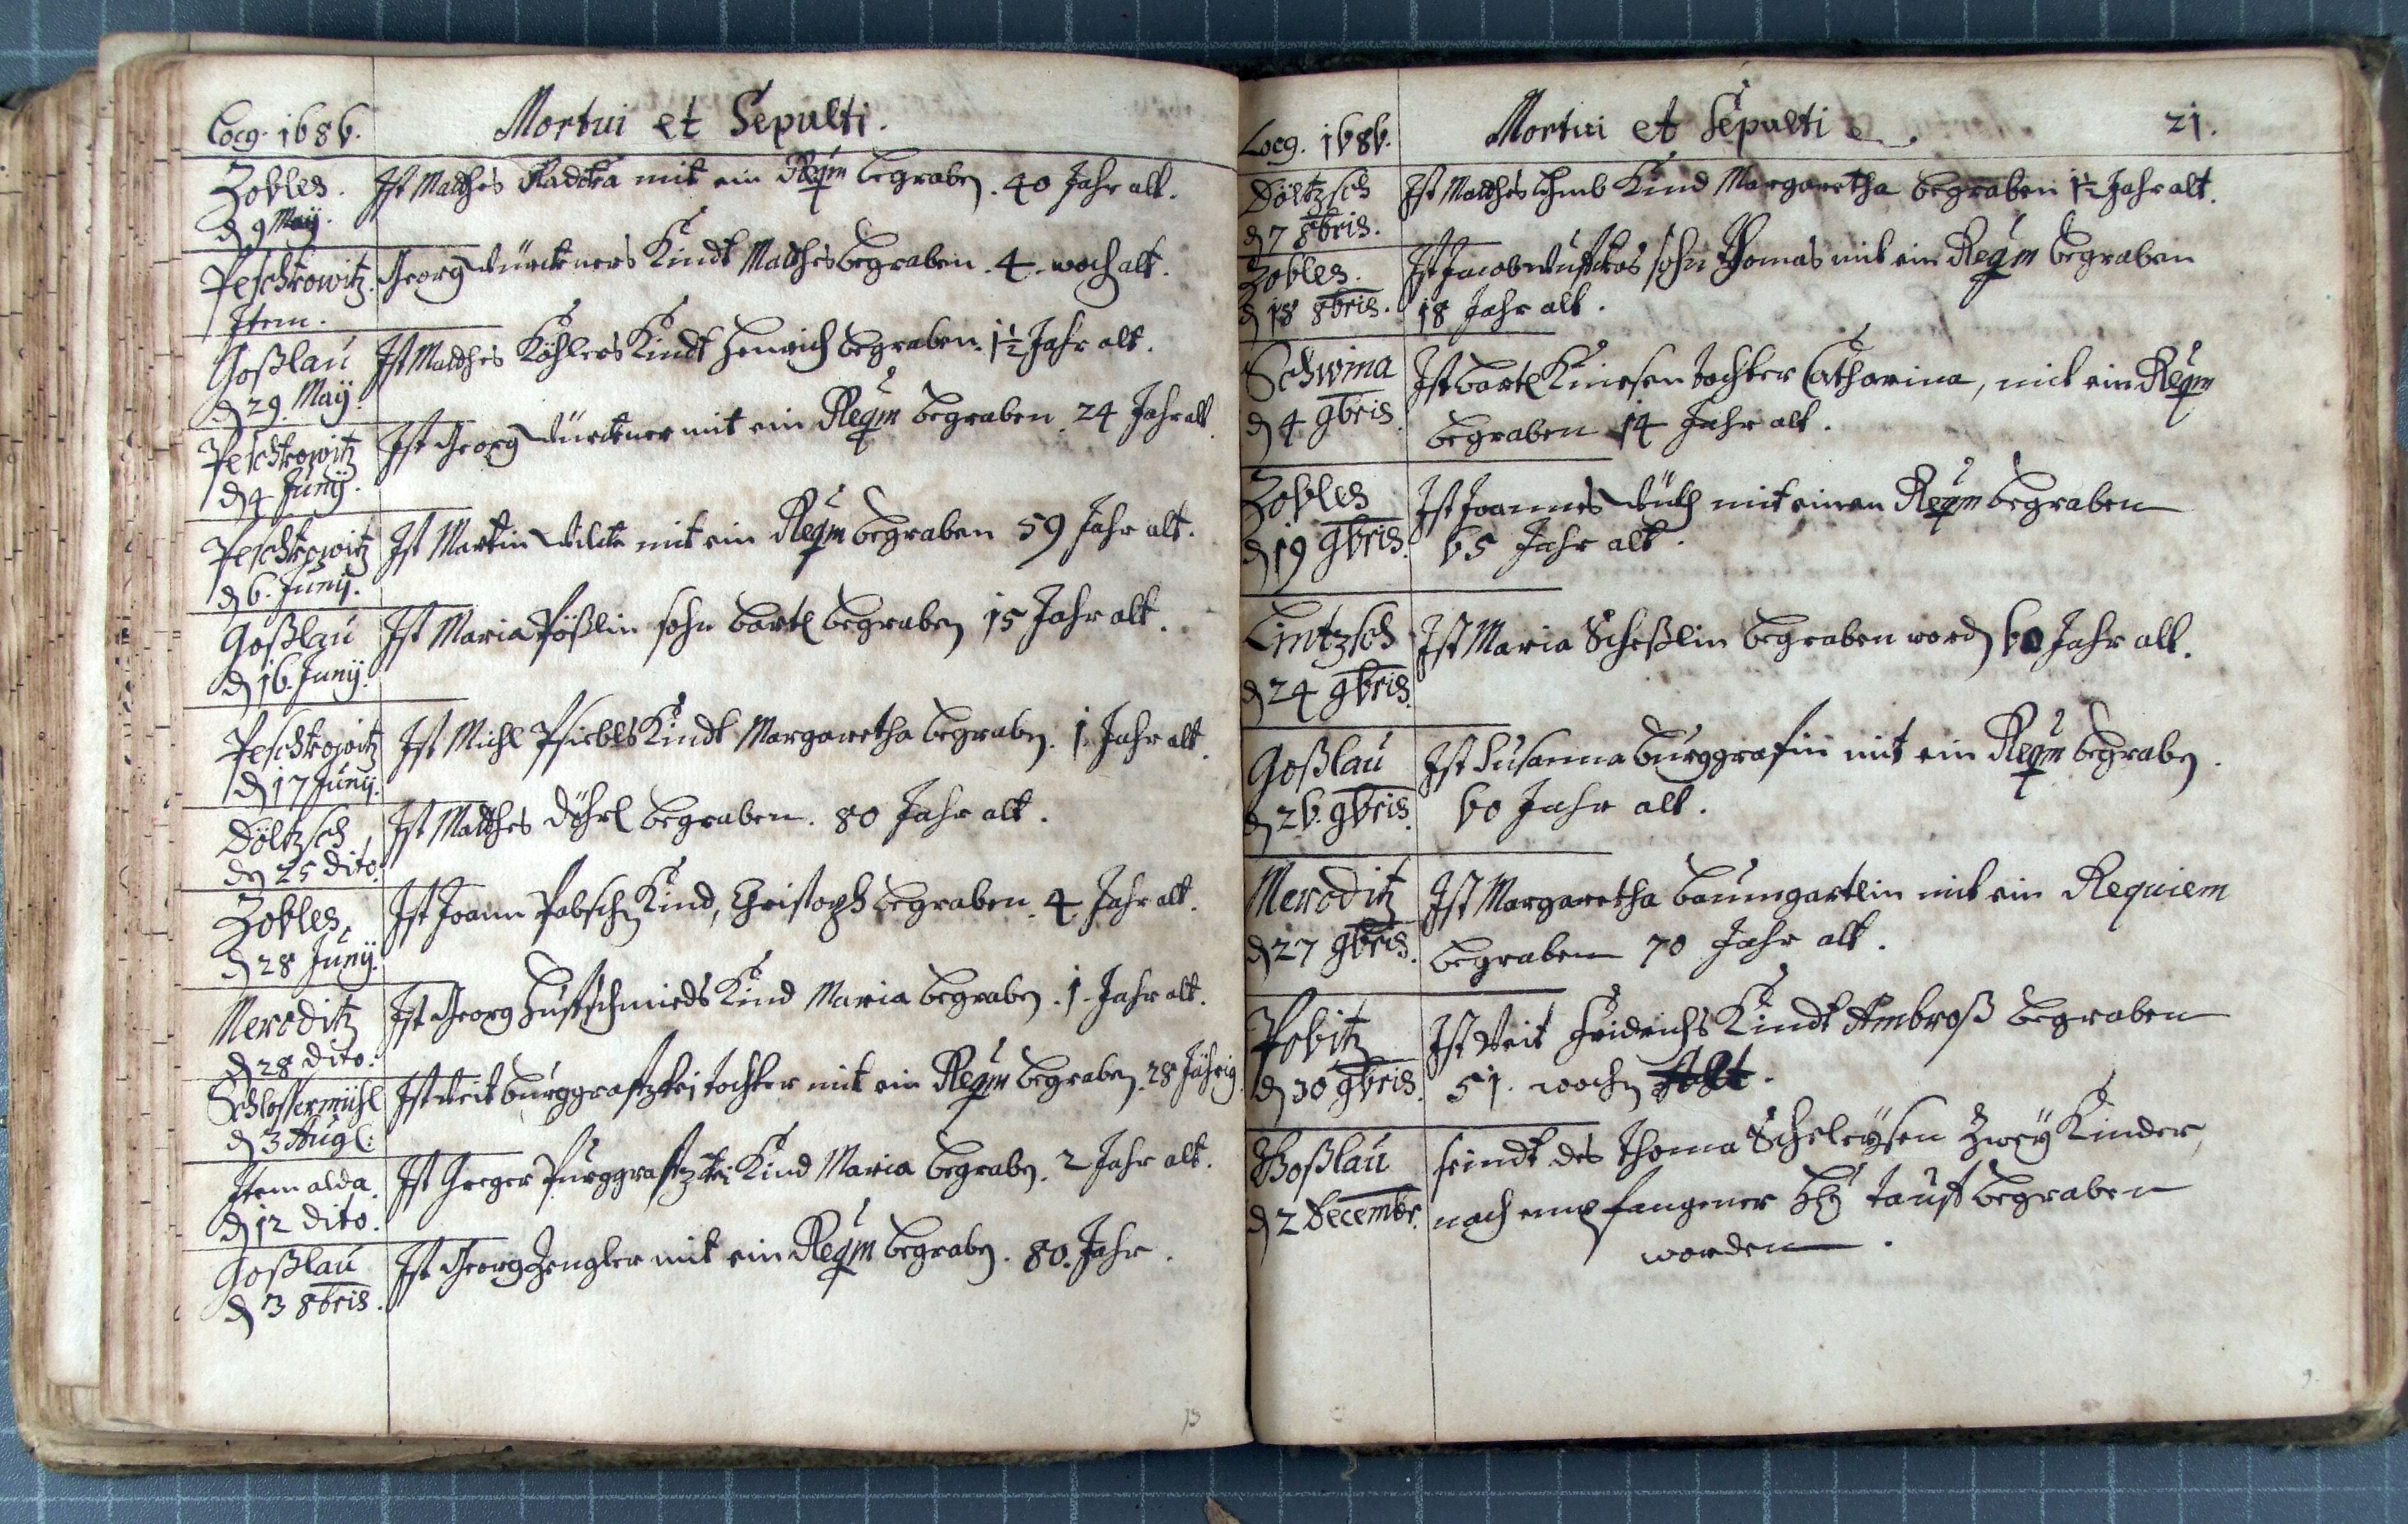 Locg. 1686.
Mortui et Sepulti.
Zobles.
d 9 Maÿ.
Ist Matthes Radcka mit ein Reqm begraben. 40 Jahr alt.
Peschkowitz.
Item.
Georg Dürckners Kindt Matthes begraben. 4. woch alt.
Goßlau
d 29. Maÿ.
Ist Matthes Köhlers Kindt Henrich begraben. 1½ Jahr alt.
Peschkowitz
d 4 Junÿ.
Ist Georg Dürckner mit ein Reqm begraben. 24 Jahr alt.
Peschkowitz
d 6. Junÿ.
Ist Martin mit ein Reqm begraben 59 Jahr alt.
Goßlau
d 16. Junÿ.
Ist Maria Pößlin sohn Bartl begraben 15 Jahr alt.
Peschkowitz
d 17 Junÿ.
Ist Michl Kindt Margaretha begraben. 1 Jahr alt.
Döltzsch
den 25 dito.
Ist Matthes Döhrl begraben. 80 Jahr alt.
Zobles
d 28 Junÿ.
Ist Joann Pabschen Kind, Christoph begraben. 4 Jahr alt.
Meroditz
d 28 dito.
Ist Georg Hufschmieds Kind Maria begraben. 1 Jahr alt.
Schlossermühl
d 3 Aug:
Ist Veit Burggraff tochter mit ein Reqm begraben. 28 Jährig
Item alda.
d 12 dito.
Ist Greger Purggraff Kind Maria begraben. 2 Jahr alt.
Goßlau
d 3 8bris.
Ist Georg Zengler mit ein Reqm begraben. 80. Jahr.
Locg. 1686.
Mortui et Sepulti
21.
Döltzsch
d 7 8bris.
Ist Matthes Kind Margaretha begraben 1½ Jahr alt.
Zobles.
d 18 8bris.
Ist Jacob sohn Thomas mit ein Reqm begraben
18 Jahr alt.
Schwina
d 4 9bris
Ist Bartl Kniesen tochter Catharina, mit ein Reqm
begraben 14 Jahr alt.
Zobles
d 19 9bris.
Ist Joannes mit einen Reqm begraben
65 Jahr alt.
Lintzsch
d 24 9bris.
Ist Maria Scheßlin begraben word 60 Jahr alt.
Goßlau
d 26. 9bris.
Ist Susanna Burggrafin mit ein Reqm begraben.
60 Jahr alt.
Meroditz
d 27 9bris.
Ist Margaretha Baumgartlin mit ein Requiem
begraben 70 Jahr alt.
Pobitz
d 30 9bris.
Ist Veit Fridrichs Kindt Ambroß begraben
51. wochen Alt.
Goßlau
d 2 Decembr.
seindt des Thoma Scheleÿsen Zweÿ Kinder,
nach empfangener Hey tauf begraben
worden.